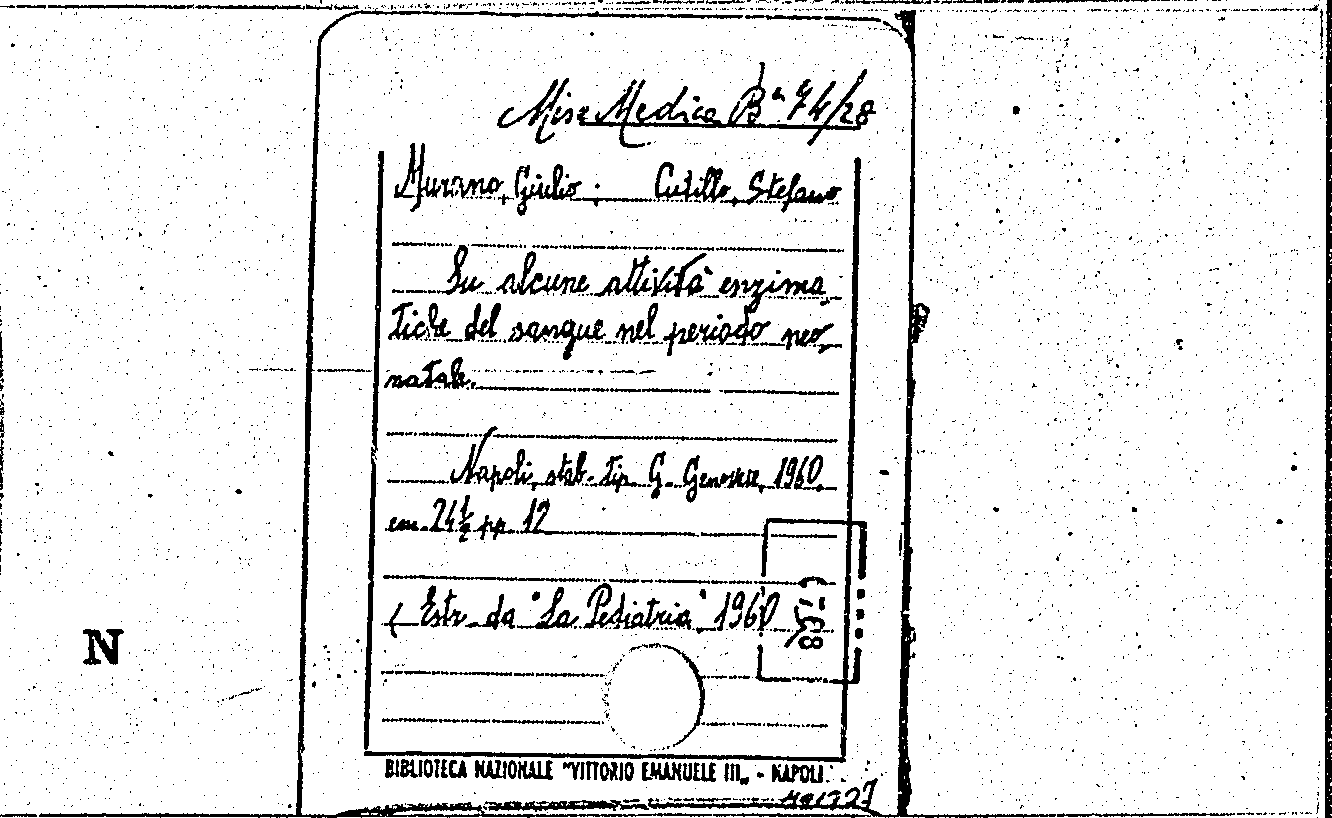 Misc Medica Bª 74/28
Murano, Giulio; Cutillo, Stefano
Su alcune attività enzima
tiche del sangue nel periodo neo
natale.
Napoli, stab. tip. G. Genovese, 1960.
cm. 24½ pp. 12
( Estr. da "La Pediatria", 1960
N
BIBLIOTECA NAZIONALE "VITTORIO EMANUELE III„ - NAPOLI.